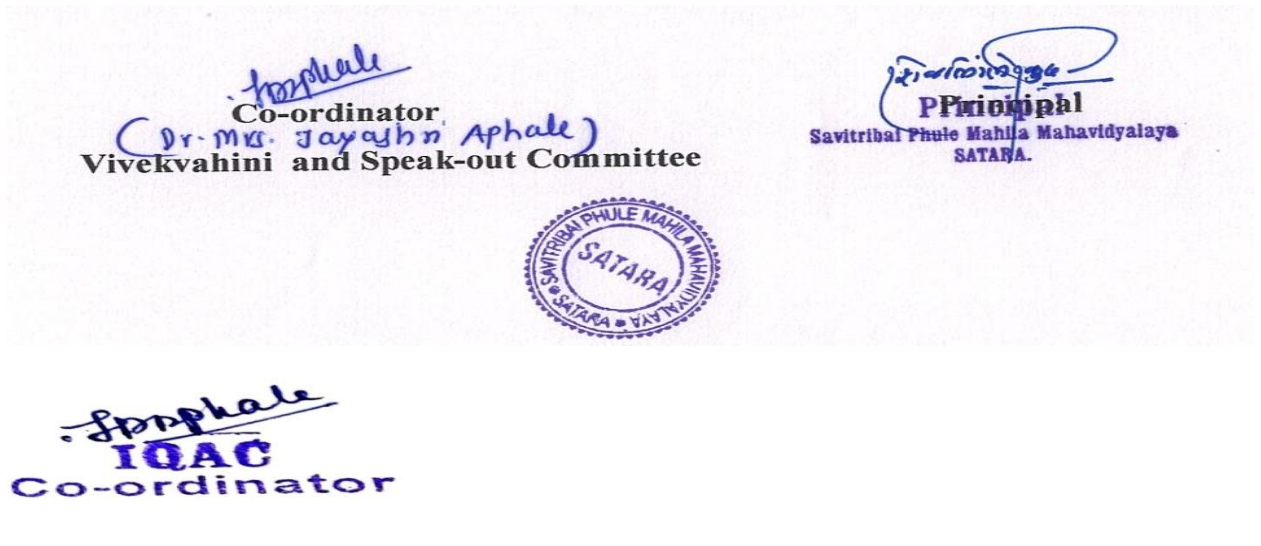 Aphale
Co-ordinator
(Dr. Mrs. Jayashri Aphale)
Vivekvahini and Speak-out Committee
Principal
Savitribai Phule Mahila Mahavidyalaya
SATARA.
SAVITRIBAI PHULE MAHILA MAHAVIDYALAYA
SATARA
SATARA
Aphale
IQAC
Co-ordinator